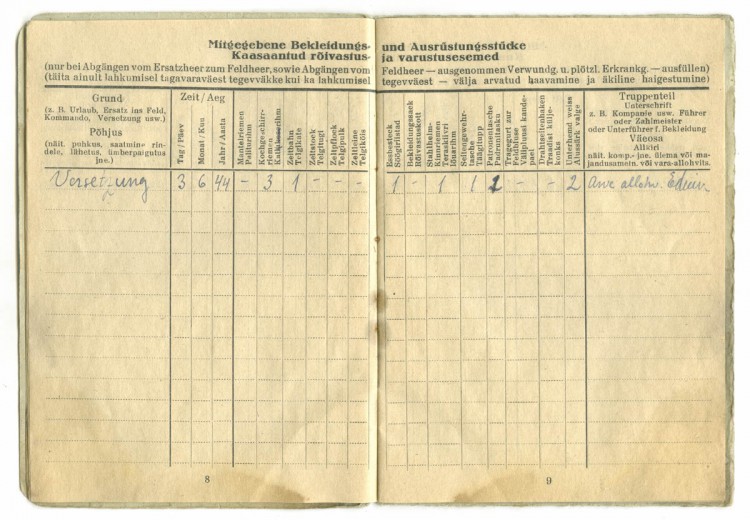 Mitgegebene Bekleidungs- und Ausrüstungsstücke
Kaasaantud rõivastus- ja varustusesemed
(nur bei Abgängen vom Ersatzheer zum Feldheer, sowie Abgängen vom Feldheer — ausgenommen Verwundg. u. plötzl. Erkrankg. — ausfüllen)
(täita ainult lahkumisel tagavaraväest tegevväkke kui ka lahkumisel tegevväest — välja arvatud haavamine ja äkiline haigestumine)
Grund
(z. B. Urlaub, Ersatz ins Feld,
Kommando, Versetzung usw.)
Põhjus
(näit. puhkus, saatmine rin-
dele, lähetus, ümberpaigutus
jne.)
Zeit / Aeg
Tag / Päev
Monat / Kuu
Jahr / Aasta
Mantelriemen
Kochgeschirr-
riemen
Zeltbahn
Telgikate
Zeltstock
Telgitugi
Zeltpflock
Zeltleine
Telgiköis
Essbesteck
Söögiriistad
Bekleidungssack
Rõivastuskott
Stahlhelm-
Kinnriemen
Teraskiivri
lõuarihm
Seitengewehr-
tasche
Tääkitupp
Patronentasche
Padrunitasku
Tragegurt zur
Feldbluse
Välipluusi kande-
pael
Drahtseitenhaken
Traadist külje-
konks
Unterhemd weiss
Alussärk valge
Truppenteil
Unterschrift
z. B. Kompanie usw. Führer
oder Zahlmeister
oder Unterführer f. Bekleidung
Väeosa
Allkiri
näit. komp.- jne. ülema või ma-
jandusametn. või vara-allohvits.
Versetzung 3 6 44 - - 3 1 - - - 1 - 1 1 2 - - 2
8
9